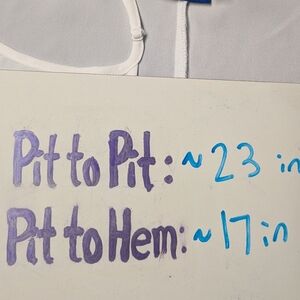 Pit to Pit: ~23 in
Pit to Hem: ~17 in